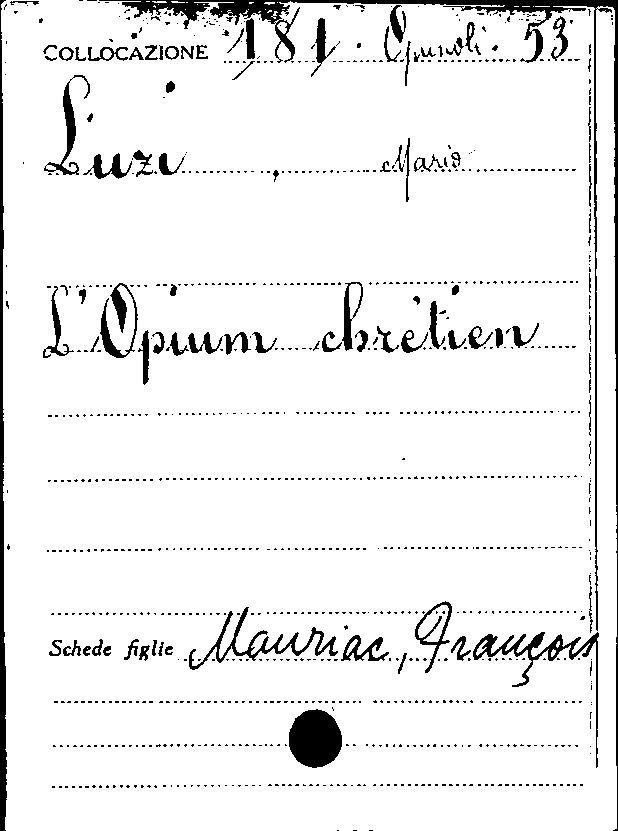 COLLOCAZIONE 181. Opuscoli. 53
Luzi, Mario
L'Opium chrétien
Schede figlie Mauriac, François